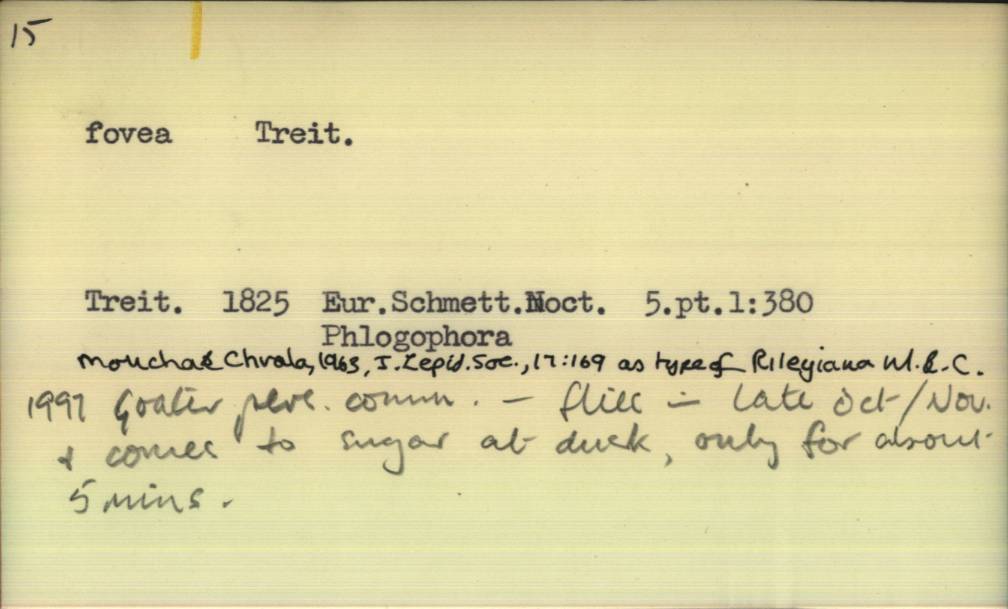 15
fovea Treit.
Treit. 1825 Eur.Schmett.Noct. 5.pt.1:380
Phlogophora
Moucha & Chvala, 1963, J. Lepid. Soc., 17:169 as type of Rileyiana M. & C.
1997 Goater pers. comm. – flies in late Oct/Nov.
& comes to sugar at dusk, only for about
5 mins.